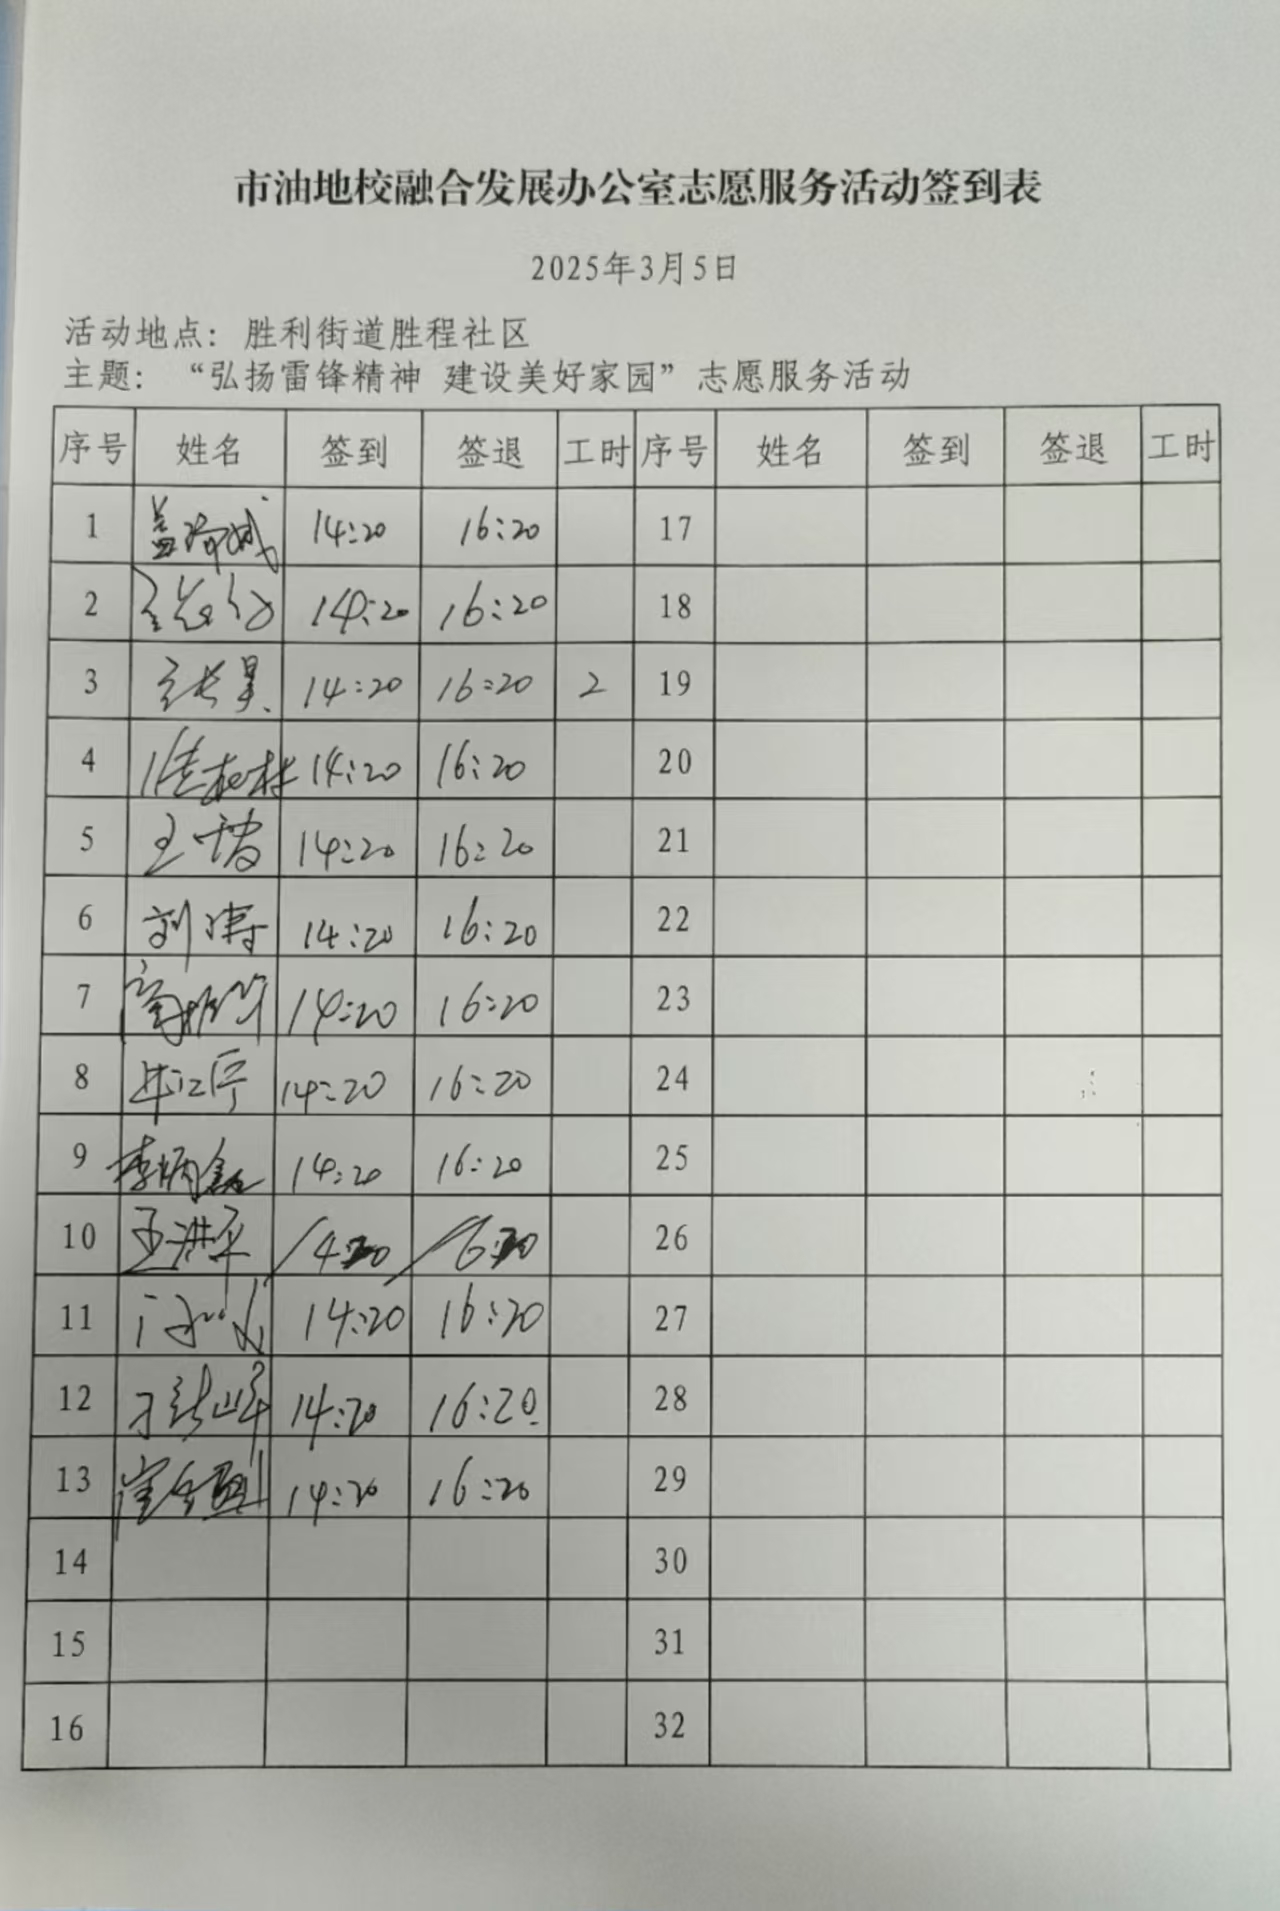 市油地校融合发展办公室志愿服务活动签到表
2025年3月5日
活动地点：胜利街道胜程社区
主题：“弘扬雷锋精神 建设美好家园”志愿服务活动
序号 姓名 签到 签退 工时 序号 姓名 签到 签退 工时
1 14:20 16:20 17
2 14:20 16:20 18
3 张昊 14:20 16:20 2 19
4 14:20 16:20 20
5 王 14:20 16:20 21
6 刘涛 14:20 16:20 22
7 14:20 16:20 23
8 牛江宁 14:20 16:20 24
9 李炳鑫 14:20 16:20 25
10 王洪平 14:20 16:20 26
11 14:20 16:20 27
12 14:20 16:20 28
13 崔 14:20 16:20 29
14 30
15 31
16 32